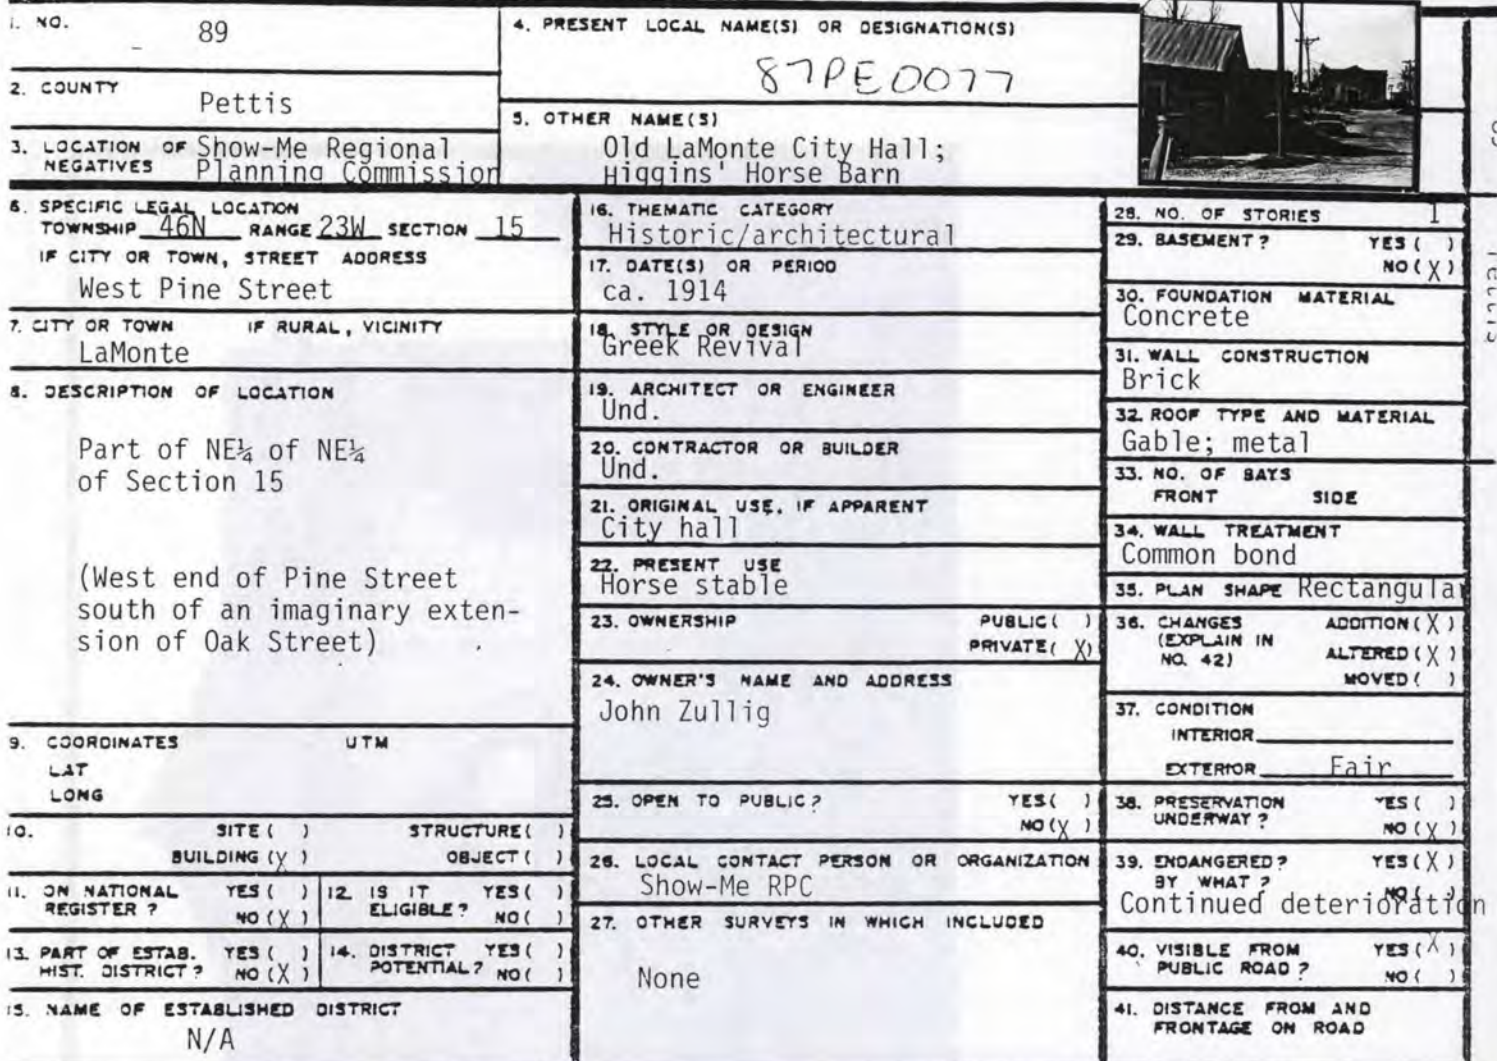 1. NO.
89
2. COUNTY
Pettis
3. LOCATION OF NEGATIVES
Show-Me Regional
Planning Commission
4. PRESENT LOCAL NAME(S) OR DESIGNATION(S)
87PE0077
5. OTHER NAME(S)
Old LaMonte City Hall;
Higgins' Horse Barn
6. SPECIFIC LEGAL LOCATION
TOWNSHIP 46N RANGE 23W SECTION 15
IF CITY OR TOWN, STREET ADDRESS
West Pine Street
7. CITY OR TOWN IF RURAL, VICINITY
LaMonte
8. DESCRIPTION OF LOCATION
Part of NE¼ of NE¼
of Section 15
(West end of Pine Street
south of an imaginary exten-
sion of Oak Street)
9. COORDINATES UTM
LAT
LONG
10. SITE ( ) STRUCTURE ( )
BUILDING (X) OBJECT ( )
11. ON NATIONAL REGISTER? YES ( )
NO (X)
12. IS IT ELIGIBLE? YES ( )
NO ( )
13. PART OF ESTAB. HIST. DISTRICT? YES ( )
NO (X)
14. DISTRICT POTENTIAL? YES ( )
NO ( )
15. NAME OF ESTABLISHED DISTRICT
N/A
16. THEMATIC CATEGORY
Historic/architectural
17. DATE(S) OR PERIOD
ca. 1914
18. STYLE OR DESIGN
Greek Revival
19. ARCHITECT OR ENGINEER
Und.
20. CONTRACTOR OR BUILDER
Und.
21. ORIGINAL USE, IF APPARENT
City hall
22. PRESENT USE
Horse stable
23. OWNERSHIP PUBLIC ( )
PRIVATE (X)
24. OWNER'S NAME AND ADDRESS
John Zullig
25. OPEN TO PUBLIC? YES ( )
NO (X)
26. LOCAL CONTACT PERSON OR ORGANIZATION
Show-Me RPC
27. OTHER SURVEYS IN WHICH INCLUDED
None
28. NO. OF STORIES 1
29. BASEMENT? YES ( )
NO (X)
30. FOUNDATION MATERIAL
Concrete
31. WALL CONSTRUCTION
Brick
32. ROOF TYPE AND MATERIAL
Gable; metal
33. NO. OF BAYS
FRONT SIDE
34. WALL TREATMENT
Common bond
35. PLAN SHAPE Rectangular
36. CHANGES ADDITION (X)
(EXPLAIN IN NO. 42) ALTERED (X)
MOVED ( )
37. CONDITION
INTERIOR
EXTERIOR Fair
38. PRESERVATION UNDERWAY? YES ( )
NO (X)
39. ENDANGERED? YES (X)
BY WHAT? NO ( )
Continued deterioration
40. VISIBLE FROM PUBLIC ROAD? YES (X)
NO ( )
41. DISTANCE FROM AND
FRONTAGE ON ROAD